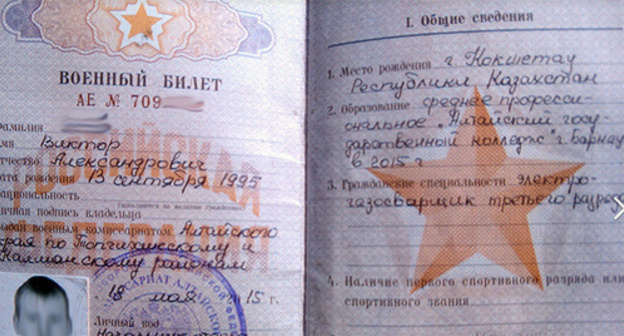 ВОЕННЫЙ БИЛЕТ
АЕ № 709
фамилия
Имя Виктор
Отчество Александрович
Дата рождения 13 сентября 1995
национальность
(заполняется по желанию гражданина)
Личная подпись владельца
Выдан военным комиссариатом Алтайского
края по Топчихинскому и
Калманскому районам
18 мая 2015 г.
Личный код
I. Общие сведения
1. Место рождения г. Кокшетау
Республики Казахстан
2. Образование среднее професси-
ональное "Алтайский госу-
дарственный колледж" г. Барнау
в 2015 г
3. Гражданские специальности электро-
газосварщик третьего разряд
4. Наличие первого спортивного разряда или
спортивного звания